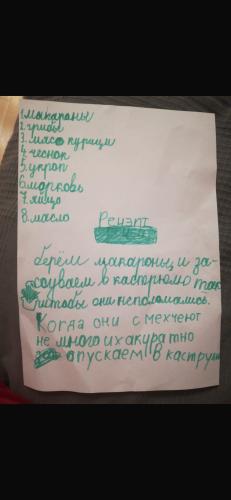 1.макароны
2.грибы
3.мясо курицы
4.чеснок
5.укроп
6.морковь
7.яйцо
8.масло
Рецэпт
берём макароны, и за-
совуваем в кастрюлю так
чтобы они неполомались.
Когда они смехчеют
не много их акуратно
опускаем в каструлю